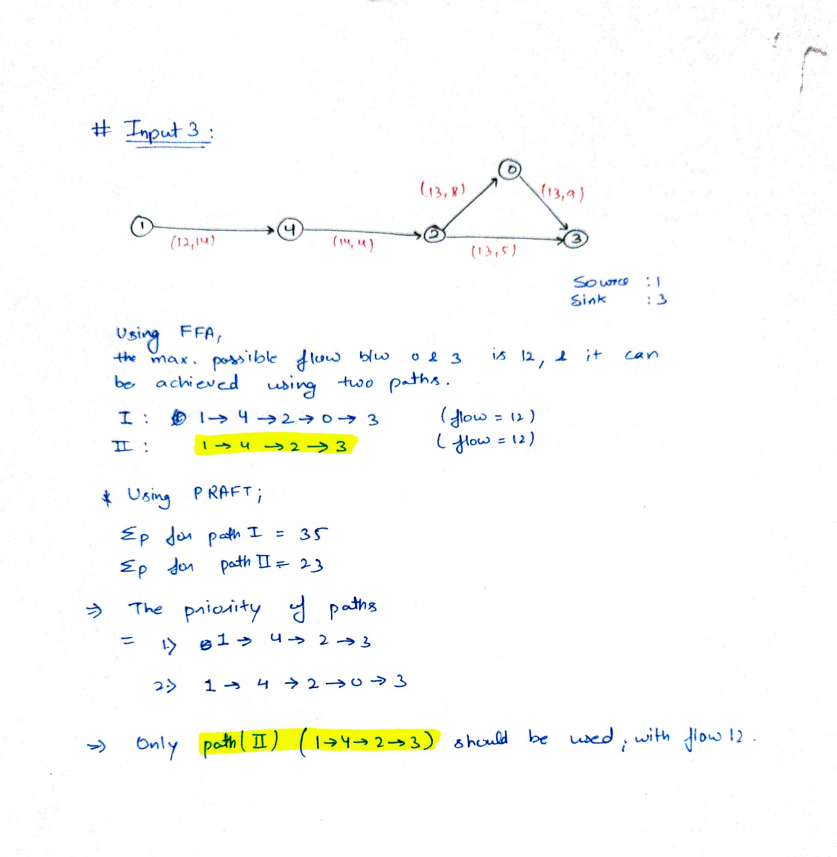 1
# Input 3 :
0
(13,8)
(13,9)
1
4
2
3
(12,14)
(14,4)
(13,5)
Source : 1
Sink : 3
Using FFA,
the max. possible flow b/w 0 & 3 is 12, & it can
be achieved using two paths.
I : 1 → 4 → 2 → 0 → 3 (flow = 12)
II : 1 → 4 → 2 → 3 (flow = 12)
* Using PRAFT;
Σp for path I = 35
Σp for path II = 23
⇒ The priority of paths
= 1.> 1 → 4 → 2 → 3
2.> 1 → 4 → 2 → 0 → 3
⇒ Only path (II) (1→4→2→3) should be used, with flow 12.